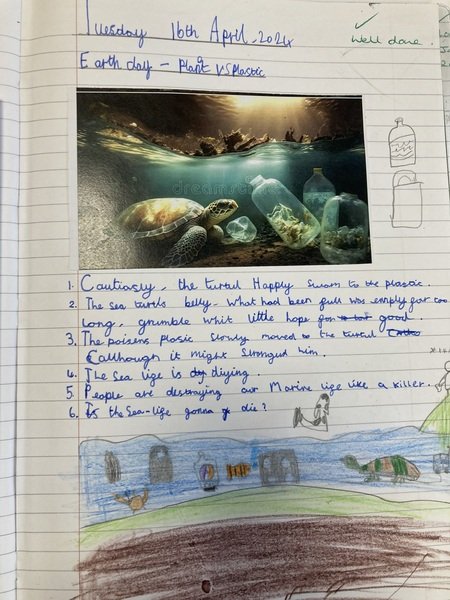 Tuesday 16th April, 2024
✓
Well done.
Earth day - planet vs plastic
dreamstime
1. Cautiasly, the turtul Happly Swam to the plastic.
2. The sea turtls belly - What had been full was empty for too
Long, grumble whit little hope good.
3. The poisens plasic Slowly moved to the turtul
(although it might Strongud him.
4. The Sea life is diying.
5. People are destraying our Marine life like a killer.
6. Is the Sea-life gonna die?